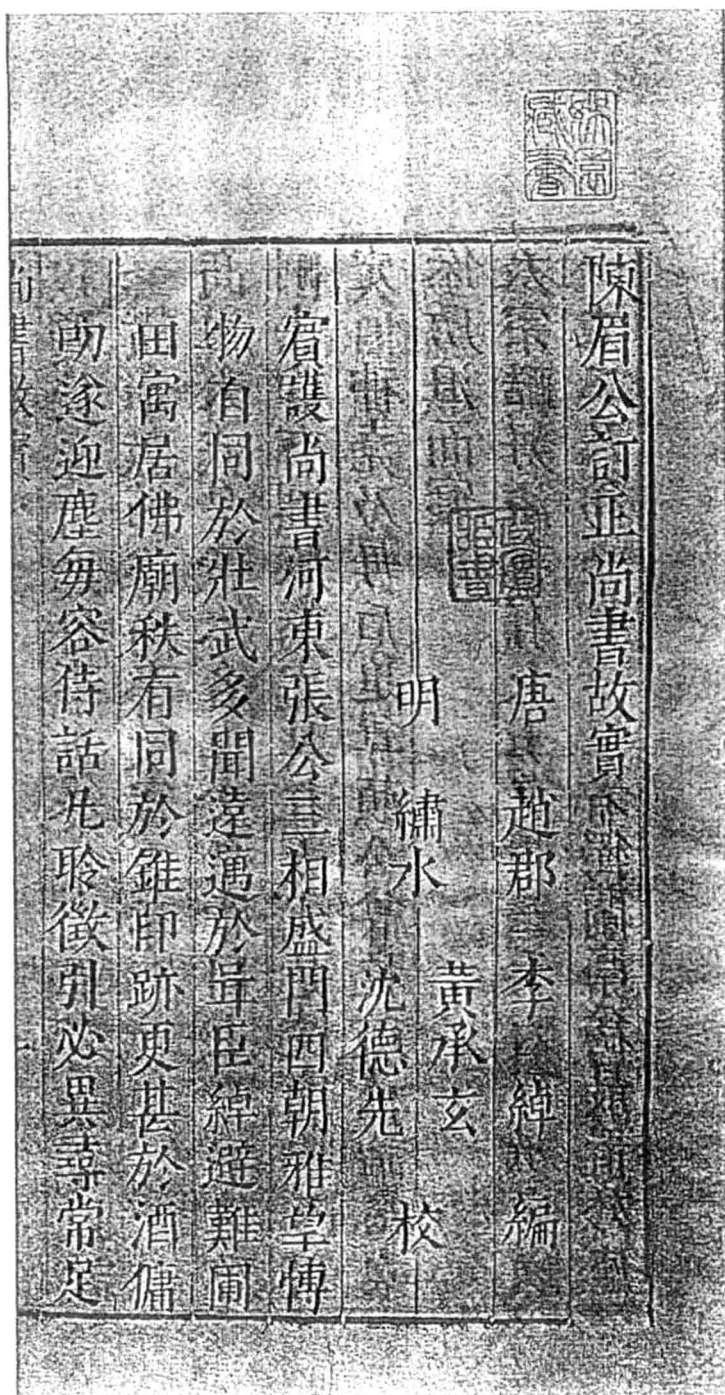 陳眉公訂正尚書故實
唐 趙郡 李綽 編
明 繡水 黃承玄
沈德先 校
賓護尚書河東張公三相盛門四朝雅望博
物自同於壯武多聞遠邁於咠臣綽避難圃
田寓居佛廟秩有同於錐印跡更甚於酒傭
叨遂迎塵每容侍話凡聆徵引必異尋常足
尚書故實